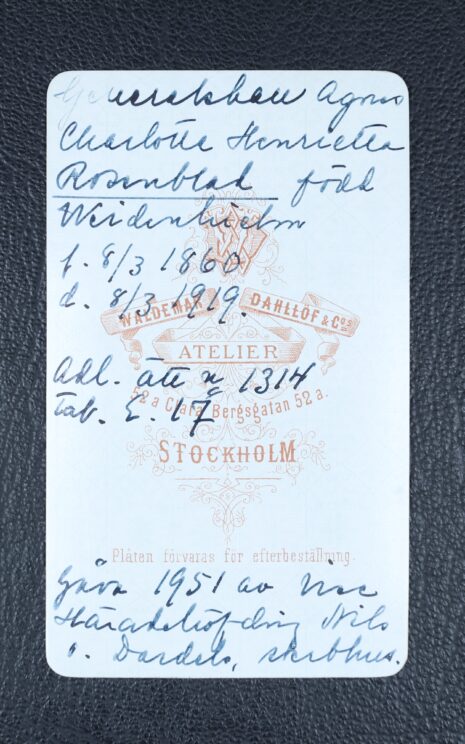 Agnes
Charlotte Henrietta
Rosenblad född
Weidenhielm
f. 8/3 1860
d. 8/3 1919.
WALDEMAR DAHLLÖF & Cos
ATELIER
Adl. ätt n 1314
52 a Clara Bergsgatan 52 a.
Tab. 17
STOCKHOLM
Plåten förvaras för efterbeställning.
Gåva 1951 av Vice
Häradshöfding Nils
v. Dardels, sterbhus.